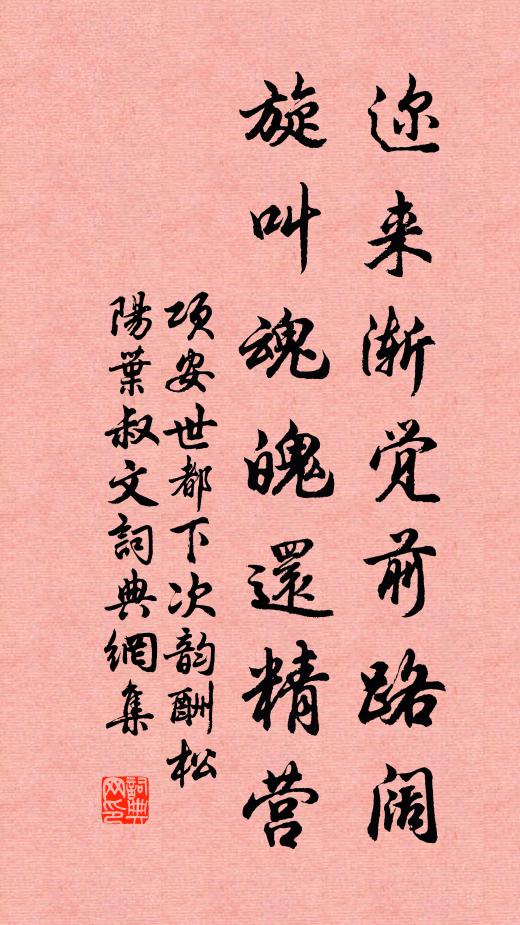 迩来渐觉前路阔
旋叫魂魄還精营
项安世都下次韵酬松
陽葉叔文詞典網集
詞典
网印